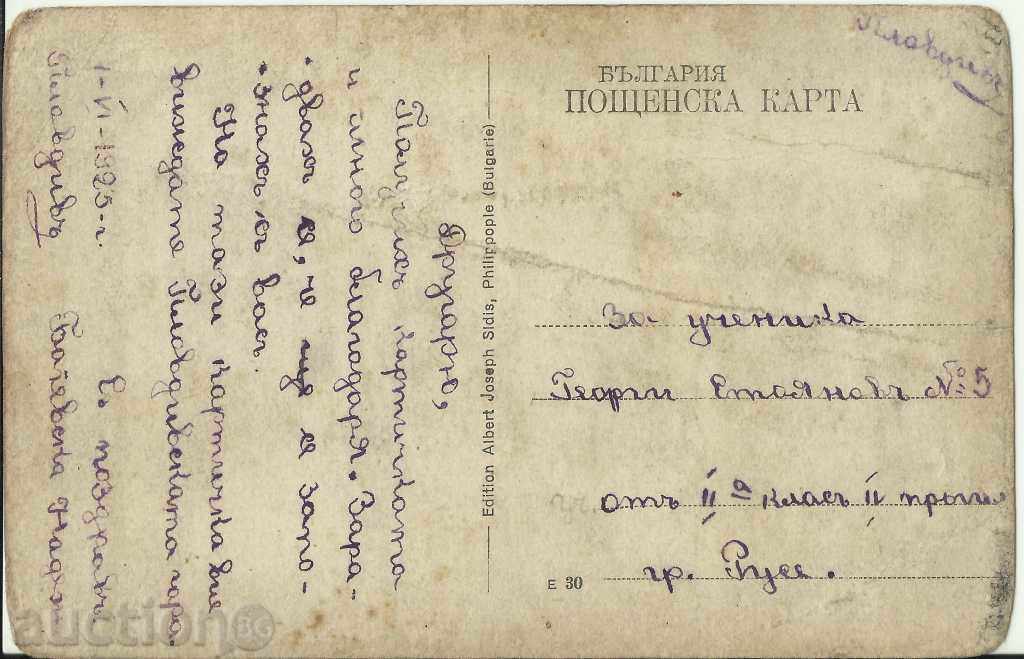 Пловдивъ
БЪЛГАРИЯ
ПОЩЕНСКА КАРТА
За ученика
Георги Стояновъ № 5
отъ II а класъ II прогим
гр. Русе.
E 30
Edition Albert Joseph Sidis, Philippople (Bulgarie)
Другарю,
Получихъ картичката
и много благодаря. Зара-
двахъ се, че ще се запо-
знахъ съ васъ.
На тази картичка вие
виждате Пловдивската гора
1-II-1925 г.
Съ поздравъ
Пловдивъ
auction BG